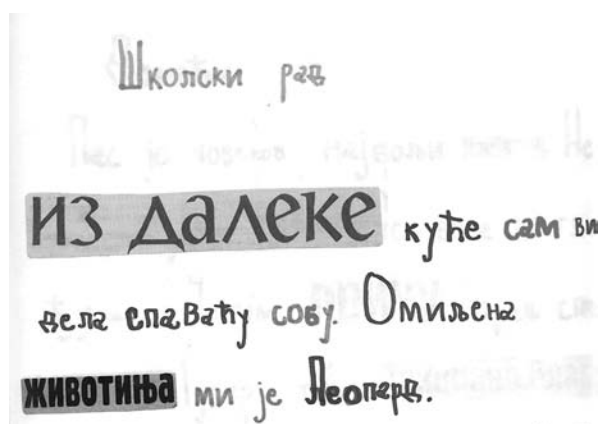 Школски рад
из далеке куће сам ви
дела спаваћу собу. Омиљена
животиња ми је Леопард.